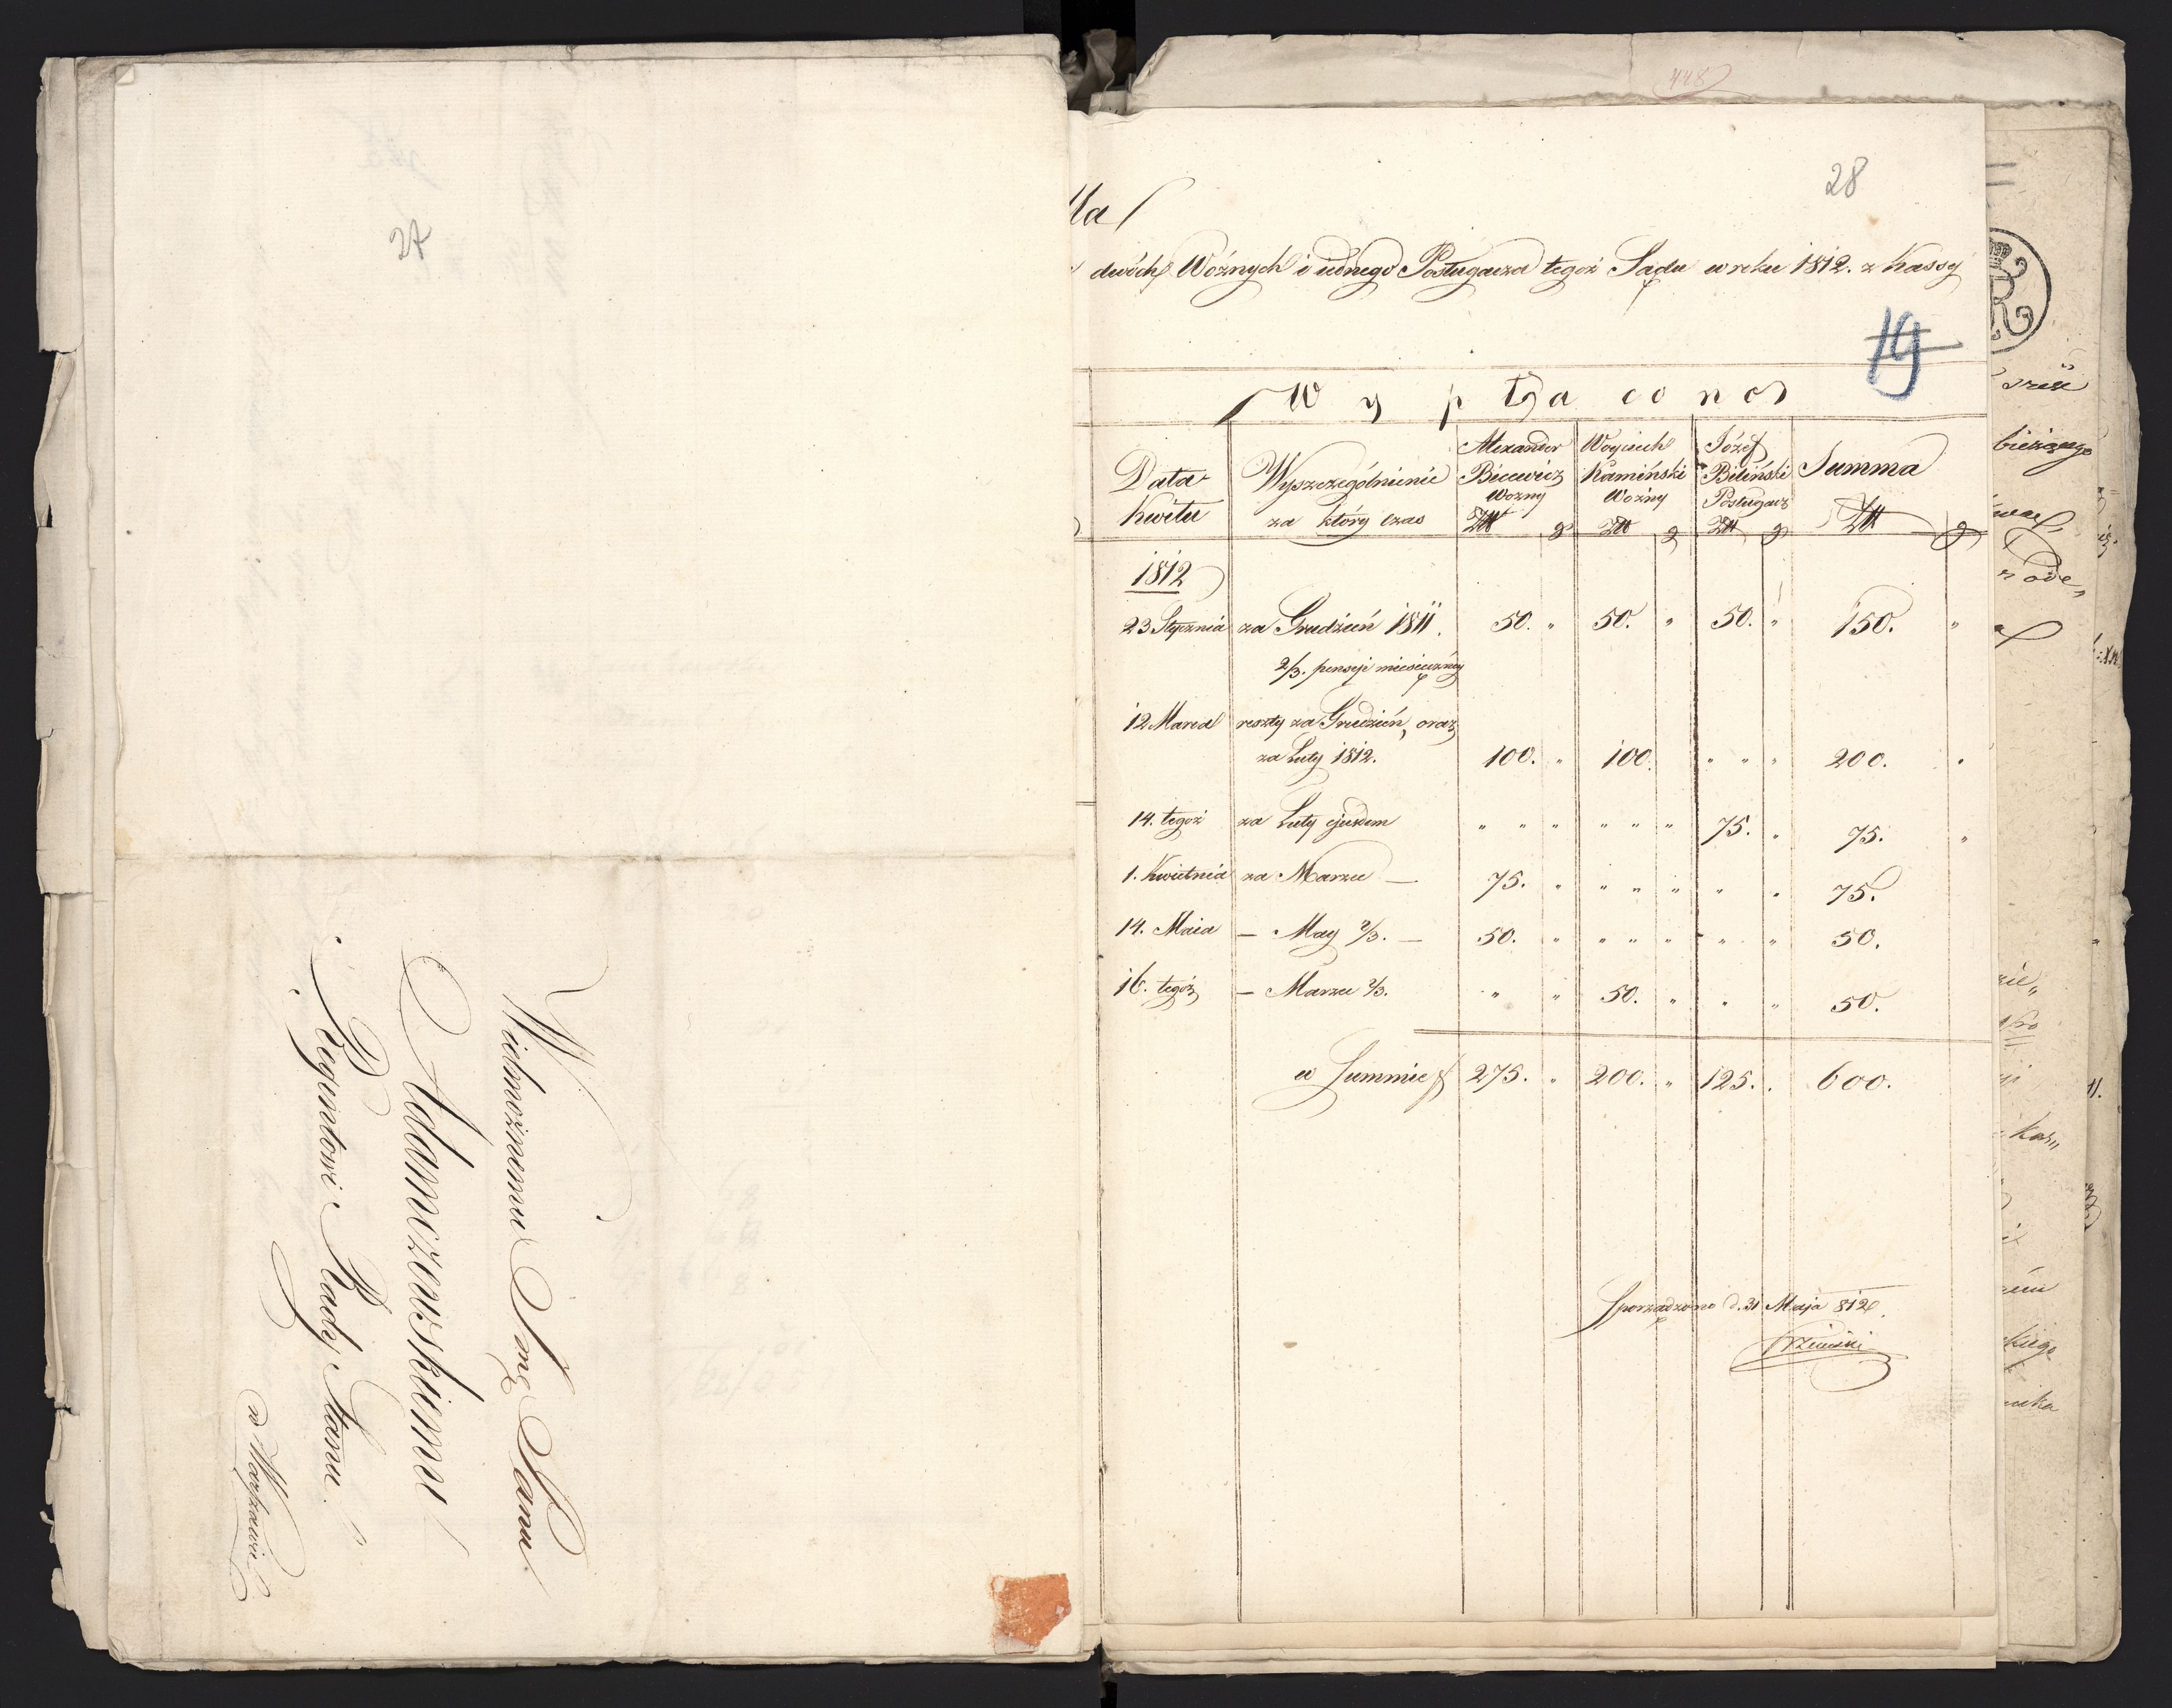 27
Wielmożnemu Jmć Panu
Adamczewskiemu
Regentowi Rady Stanu
w Warszawie
448
28
dwóch Woźnych i iednego Posługacza tegoż Sądu w roku 1812. z Kassy
19
Wypłacono
Data Kwitu | Wyszczególnienie za który czas | Alexander Bicewicz Woźny Złł g | Woyciech Kamiński Woźny Złł g | Józef Biliński Posługacz Złł g | Summa Złł g
1812
23 Stycznia za Grudzień 1811. 50. " 50. " 50. " 150. "
2/3. pensyi miesięczney
12 Marca reszty za Grudzień, oraz
za Luty 1812. 100. " 100. " " " 200. "
14. tegoż za Luty ejusdem " " " " " " 75. " 75. "
1. Kwietnia za Marzec — 75. " " " " " " 75.
14. Maia — May 2/3. — 50. " " " " " " 50.
16. tegoż — Marzec 2/3. " " 50. " " " 50.
w Summie 275. " 200. " 125. " 600.
Sporządzono d. 31 Maja 812